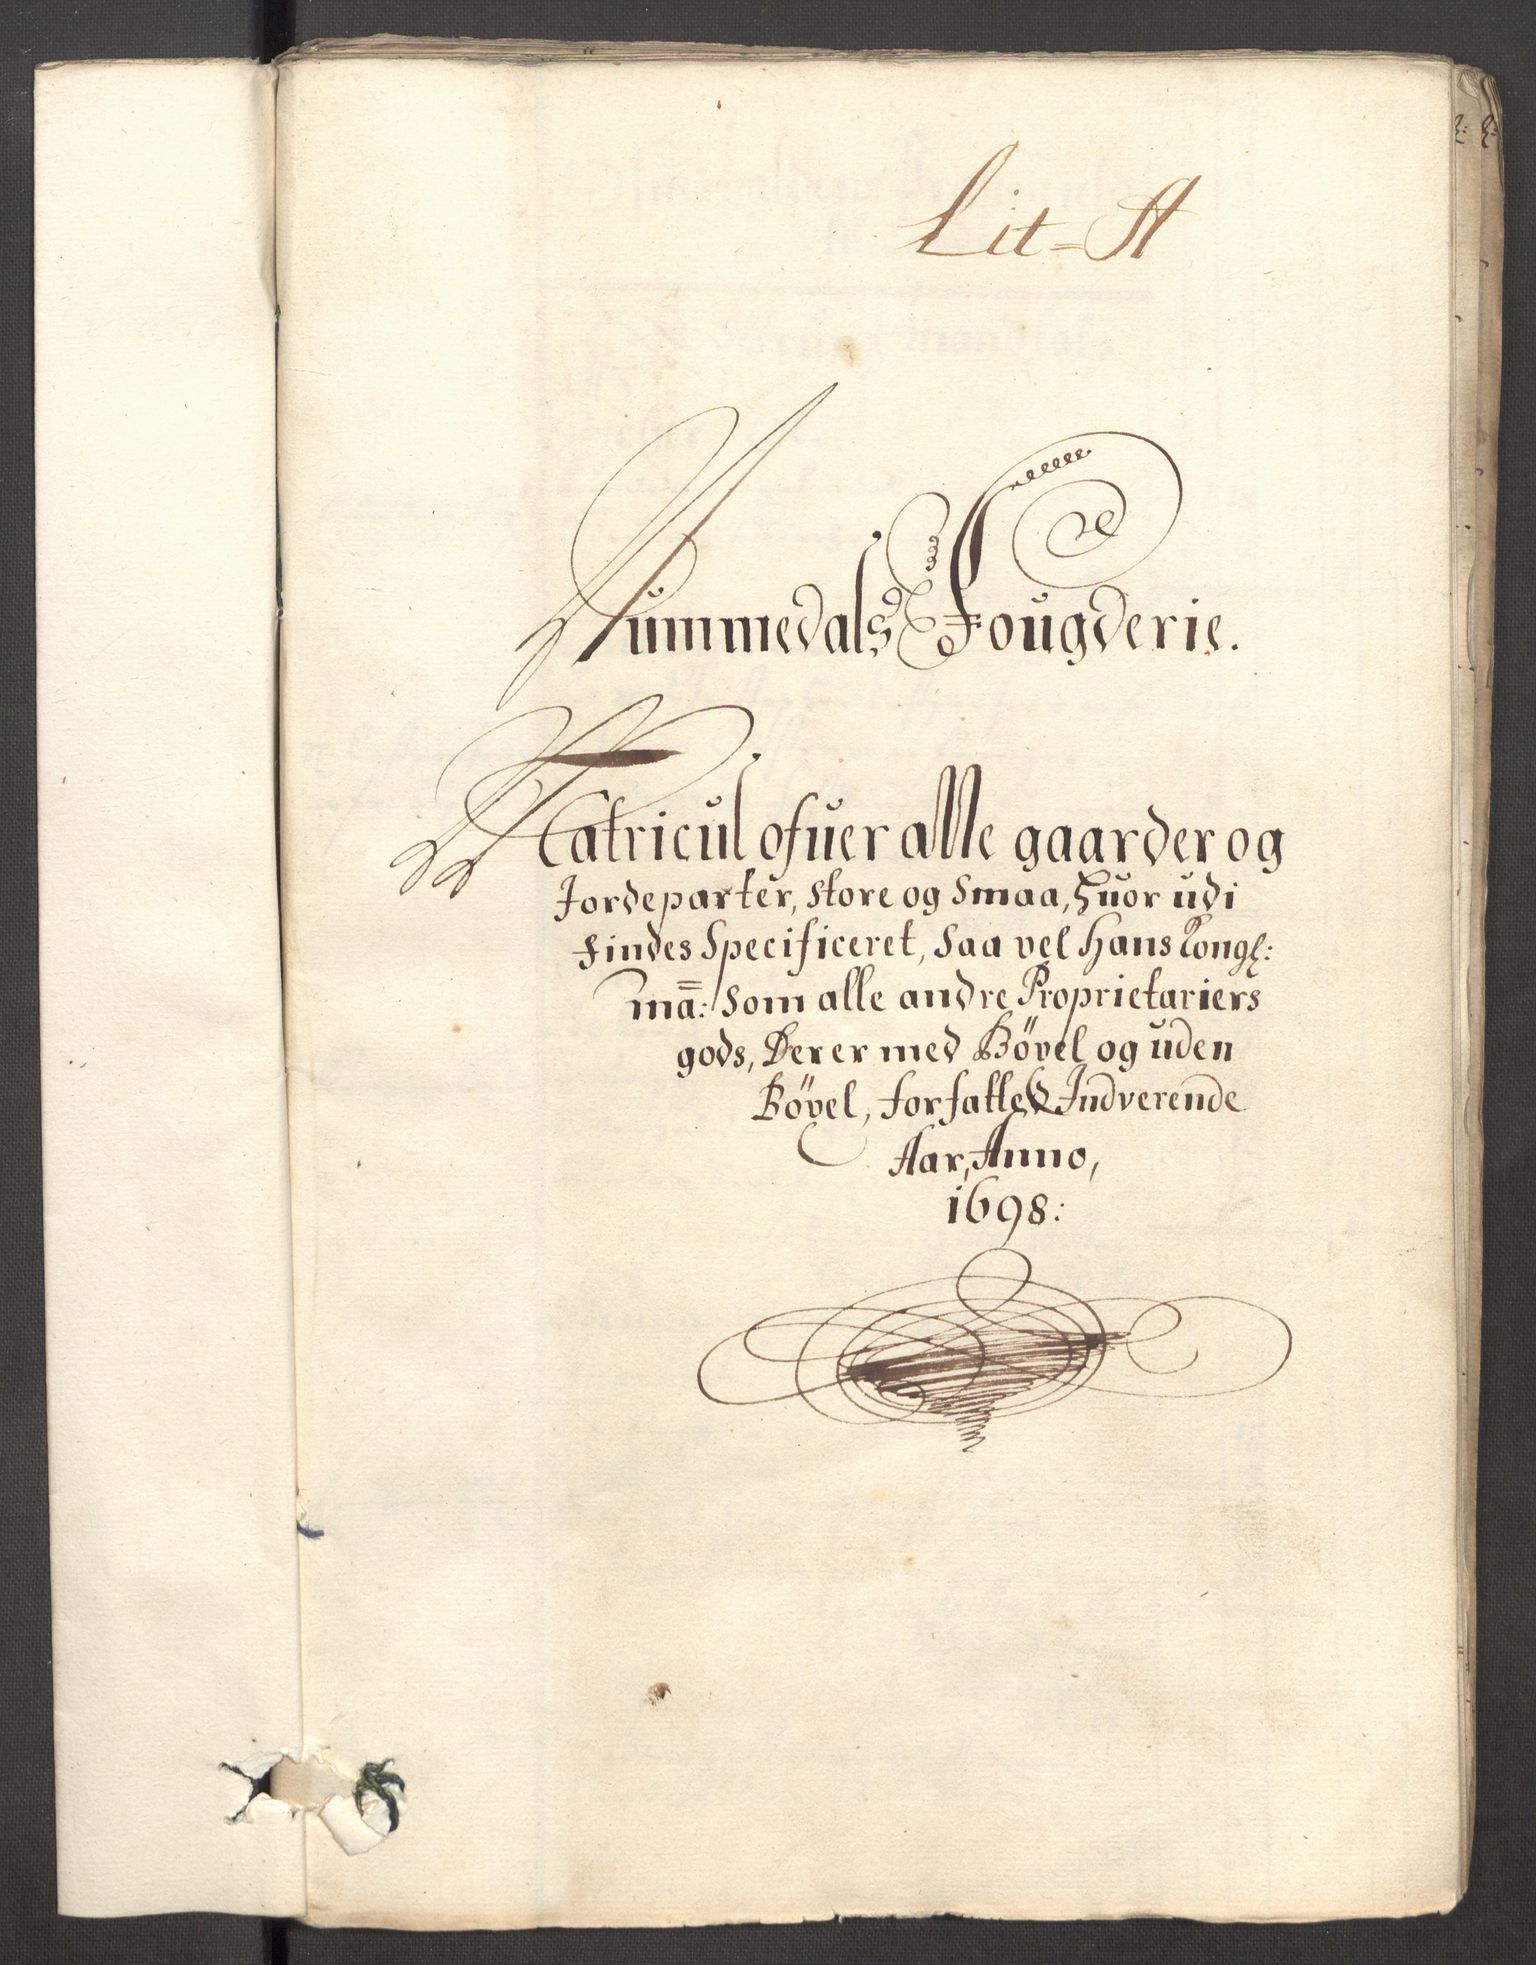 Lit-A
Nummedals Fougderie.
Matricul ofuer alle gaarder og
Jordeparter, store og smaa, Huor udi
findes Specificeret, saa vel Hans Kongl:
ma: som alle andre Proprietariers
gods, Derer med Bövel og uden
Bövel, forfattet Indverende
Aar, Anno,
1698: